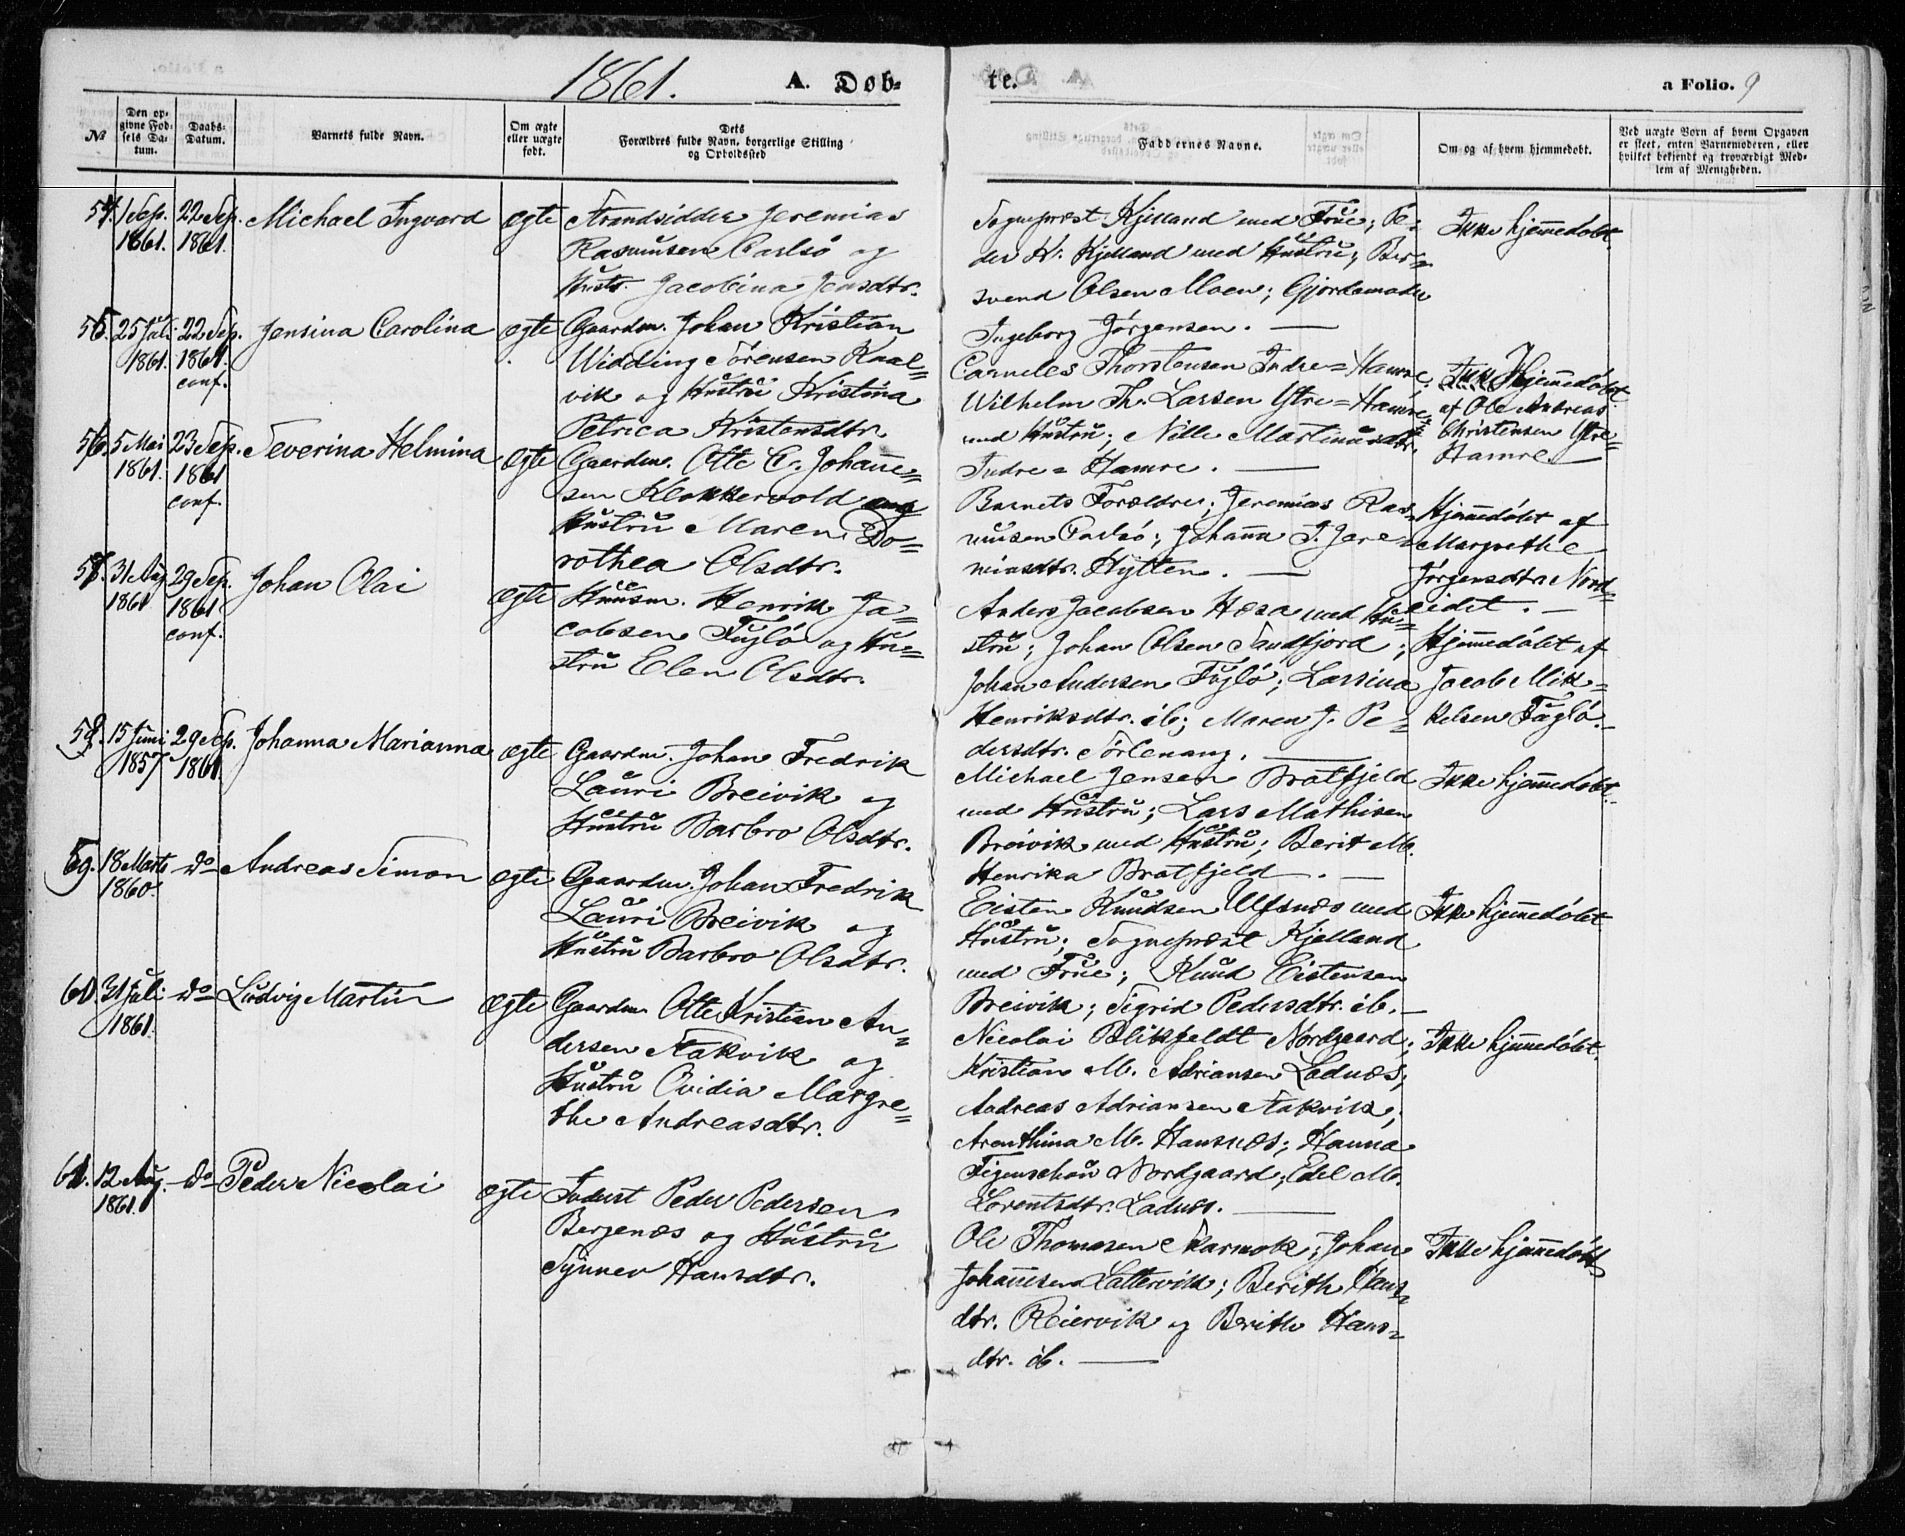 1861.
A. Døb-
te.
a Folio. 9
№
Den op-
givne Fød-
sels Da-
tum.
Daabs-
Datum.
Barnets fulde Navn.
Om ægte
eller uægte
født.
Dets
Forældres fulde Navn, borgerlige Stilling
og Opholdssted
Faddernes Navne.
Om og af hvem hjemmedøbt.
Ved uægte Børn af hvem Opgaven
er skeet, enten Barnemoderen, eller
hvilket bekjendt og troværdigt Med-
lem af Menigheden.
54. 1 Sep.
1861.
22 Sep.
1861.
Michael Ingvard
ægte
Strandsidder Jeremias
Rasmusen Carlsø og
Hustr. Jacobina Jensdtr.
Sognepræst Kjelland med Frue; Pe-
der K. Kjelland med Hustru; Ber-
svend Olsen Moen; Gjordemoder
Ingeborg Jørgensen.
Ikke hjemmedøbt
55. 25 Juli
1861.
22 Sep.
1861.
conf.
Jensina Carolina
ægte
Gaardm. Johan Kristian
Widding Sørensen Kaal-
vik og Hustru Kristina
Petrica Kristensdtr.
Corneles Thorstensen Indre-Hamre.
Wilhelm Th. Larsen Ytre-Hamre
med Hustru; Nille Martinusdtr.
Indre-Hamre.
Hjemmedøbt
af Ole Andreas
Christensen Ytre-
Hamre
56. 5 Mai
1861.
23 Sep.
1861
conf.
Severina Helmina
ægte
Gaardm. Otte E. Johanne-
sen Klokkervold og
Hustru Maren Do-
rothea Olsdtr.
Barnets Forældre; Jeremias Ras-
musen Carlsø; Johanna J. Jere-
miasdtr. Hytten.
Hjemmedøbt af
Margrethe
Jørgensdtr. Nord-
eidet.
57. 31 Aug
1861
29 Sep.
1861.
conf.
Johan Olai
ægte
Huusm. Henrik Ja-
cobsen Fuglø og Hu-
stru Elen Olsdtr.
Anders Jacobsen Hesa med Hu-
stru; Johan Olsen Sandfjord;
Johan Andersen Fuglø; Larsina
Henriksdtr. ib; Maren J. Pe-
dersdtr. Sørlenang.
Hjemmedøbt af
Jacob Mik-
kelsen Fuglø.
58. 15 Juni
1857
29 Sep.
1861.
Johanna Marianna
ægte
Gaardm. Johan Fredrik
Lauri Breivik og
Hustru Barbro Olsdtr.
Michael Jensen Bratfjeld
med Hustru; Lars Mathisen
Breivik med Hustru; Berit M.
Henrika Bratfjeld.
Ikke hjemmedøbt.
59. 18 Marts
1860.
do
Andreas Simon
ægte
Gaardm. Johan Fredrik
Lauri Breivik og
Hustru Barbro Olsdtr.
Eisten Knudsen Ulfsnæs med
Hustru; Sognepræst Kjelland
med Frue; Knud Eistensen
Breivik; Sigrid Pedersdtr. ib.
Ikke hjemmedøbt
60. 31 Juli
1861.
do
Ludvig Martin
ægte
Gaardm. Otte Kristian An-
dersen Stakvik og
Hustru Ovidia Margre-
the Andreasdtr.
Nicolai Blikfeldt Nordgaard;
Kristian M. Adriansen Ladnæs;
Andreas Adriansen Stakvik;
Arenthina M. Hansnæs; Hanna
Figenschau Nordgaard; Edel M.
Lorentsdtr. Ladnæs.
Ikke hjemmedøbt.
61. 12 Aug.
1861.
do
Peder Nicolai
ægte
Inderst Peder Pedersen
Bergenæs og Hustru
Synnev Hansdtr.
Ole Thomasen Skarmok; Johan
Johannesen Lattervik; Berith Hans-
dtr. Reiervik og Berith Hans-
dtr. ib.
Ikke hjemmedøbt